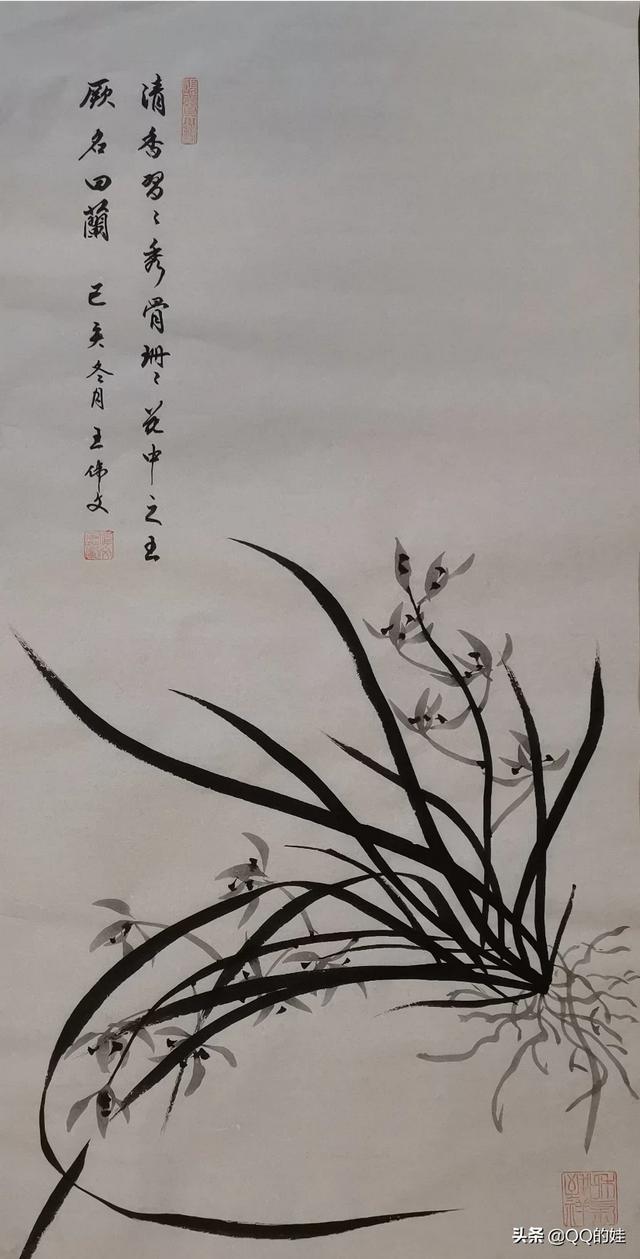 清香習〻秀骨珊〻花中之王
厥名曰蘭 己亥冬月王偉文
头条 @QQ的娃